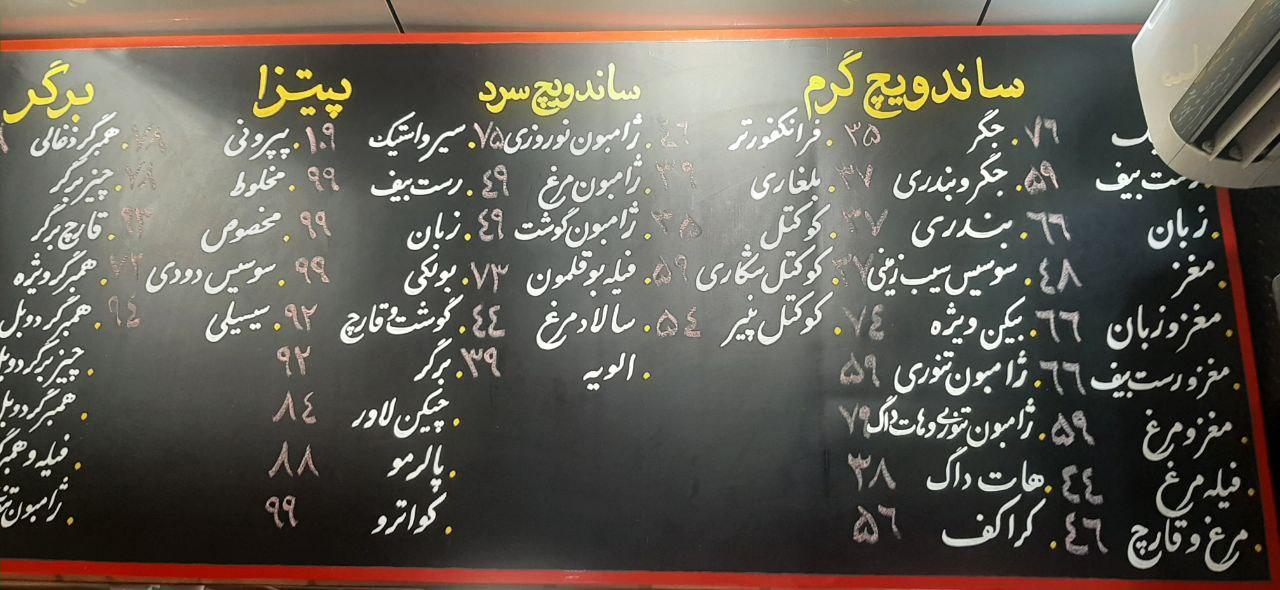 ساندویچ گرم
۷۹
رست بیف ۵۹
زبان ۶۶
مغز ۴۸
مغز و زبان ۶۶
مغز و رست بیف ۶۶
مغز و مرغ ۵۹
فیله مرغ ۴۴
مرغ و قارچ ۴۶
جگر ۳۵
جگر و بندری ۳۷
بندری ۳۷
سوسیس سیب زمینی ۳۷
بیکن ویژه ۷۴
ژامبون تنوری ۵۹
ژامبون تنوری و هات داگ ۷۹
هات داگ ۳۸
کراکف ۵۶
فرانکفورتر ۴۶
بلغاری ۳۹
کوکتل ۳۵
کوکتل ۵۹
کوکتل پنیر ۵۴
ساندویچ سرد
ژامبون نوروزی ۷۵
ژامبون مرغ ۴۹
ژامبون گوشت ۴۹
فیله بوقلمون ۷۳
سالاد مرغ ۴۴
الویه ۳۹
پیتزا
سیر و استیک ۱۰۹
رست بیف ۹۹
زبان ۹۹
بونکی ۹۹
گوشت و قارچ ۹۲
برگر ۹۲
چیکن لاور ۸۴
پالرمو ۸۸
کواترو ۹۹
پپرونی ۷۹
مخلوط ۷۸
مخصوص ۹۳
سوسیس دودی ۷۲
سیسیلی ۹۴
برگر
همبرگر ذغالی
چیزبرگر
قارچ برگر
همبرگر ویژه
همبرگر دوبل
چیزبرگر
همبرگر
فیله و
ژامبون